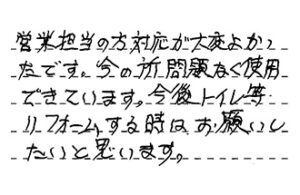 営業担当の方対応が大変よかっ
たです。今の所問題なく使用
できています。今後トイレ等
リフォームする時はお願いし
たいと思います。